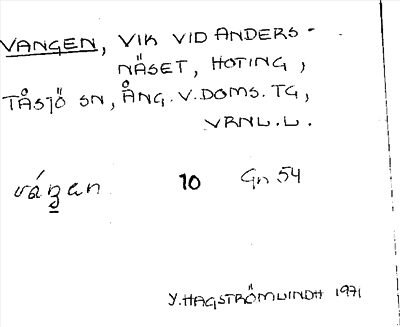 VANGEN, VIK VID ANDERS-
NÄSET, HOTING,
TÅSJÖ SN, ÅNG. V. DOMS. TG,
VRNL. L.
váŋan 10 Gn 54
Y. HAGSTRÖM LINDH 1971